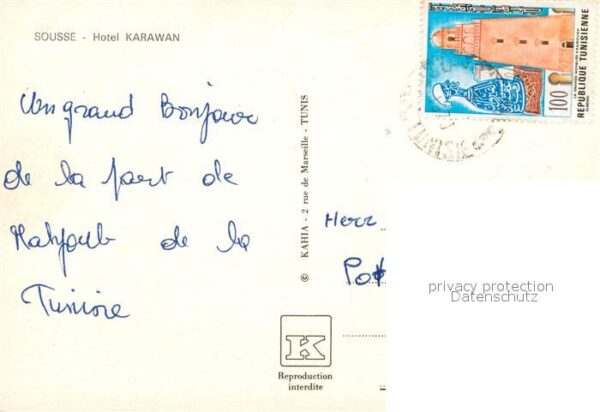 SOUSSE - Hotel KARAWAN
Un grand Bonjour
de la part de
Mahjoub de la
Tunisie
© KAHIA - 2 rue de Marseille - TUNIS
K
Reproduction
interdite
REPUBLIQUE TUNISIENNE
100
Herr
privacy protection
Datenschutz